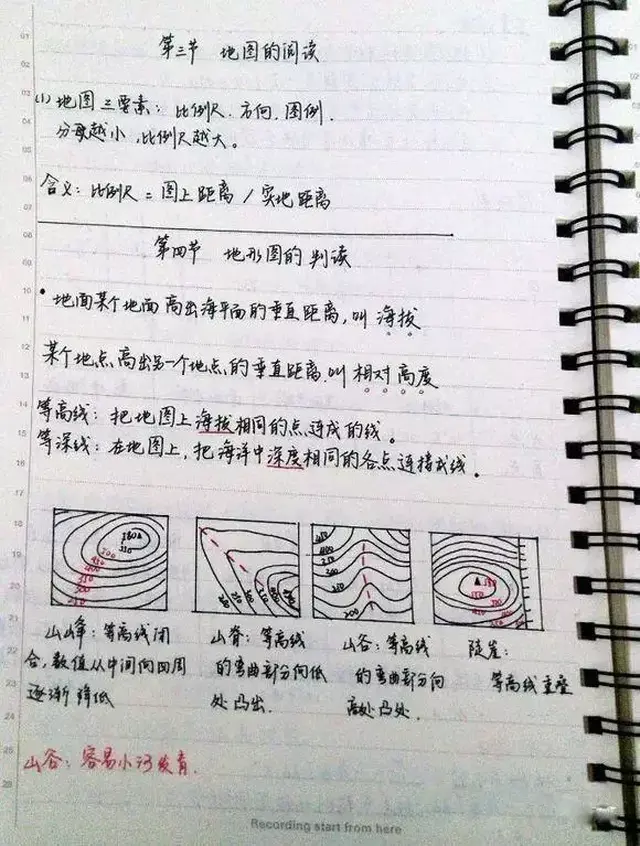 第三节 地图的阅读
(1) 地图三要素：比例尺．方向．图例．
分母越小，比例尺越大。
含义：比例尺 = 图上距离 / 实地距离
第四节 地形图的判读
• 地面某个地面高出海平面的垂直距离，叫海拔
某个地点高出另一个地点的垂直距离．叫相对高度
等高线：把地图上海拔相同的点连成的线。
等深线：在地图上，把海洋中深度相同的各点连接成线。
山峰：等高线闭
合，数值从中间向四周
逐渐降低
山脊：等高线
的弯曲部分向低
处凸出．
山谷：等高线
的弯曲部分向
高处凸处．
陡崖：
等高线重叠
山谷：容易小河发育．
Recording start from here